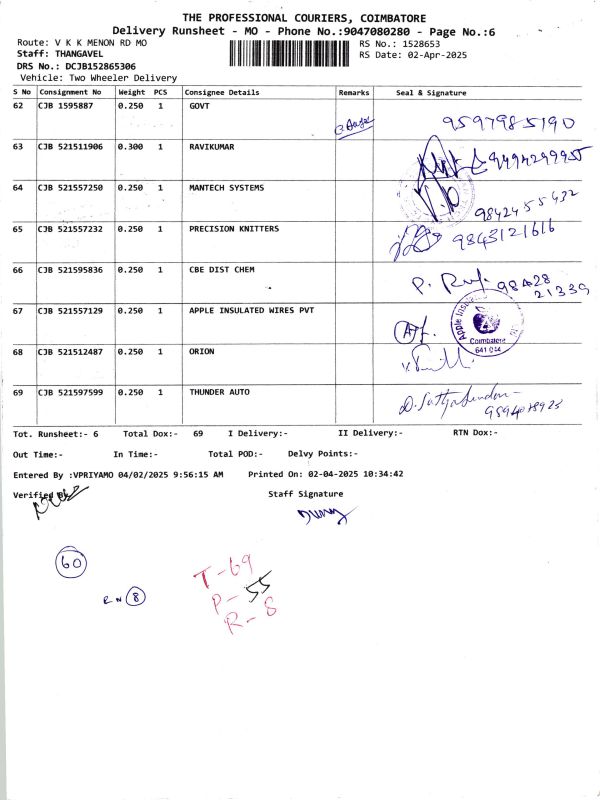 THE PROFESSIONAL COURIERS, COIMBATORE
Delivery Runsheet - MO - Phone No.:9047080280 - Page No.:6
Route: V K K MENON RD MO
RS No.: 1528653
Staff: THANGAVEL
RS Date: 02-Apr-2025
DRS No.: DCJB152865306
Vehicle: Two Wheeler Delivery
S No Consignment No Weight PCS Consignee Details Remarks Seal & Signature
62 CJB 1595887 0.250 1 GOVT 9597985190
63 CJB 521511906 0.300 1 RAVIKUMAR 9494299955
64 CJB 521557250 0.250 1 MANTECH SYSTEMS 9842455432
65 CJB 521557232 0.250 1 PRECISION KNITTERS 9843121616
66 CJB 521595836 0.250 1 CBE DIST CHEM 98428
21339
67 CJB 521557129 0.250 1 APPLE INSULATED WIRES PVT Apple Coimbatore 641 044
68 CJB 521512487 0.250 1 ORION
69 CJB 521597599 0.250 1 THUNDER AUTO
Tot. Runsheet:- 6 Total Dox:- 69 I Delivery:- II Delivery:- RTN Dox:-
Out Time:- In Time:- Total POD:- Delvy Points:-
Entered By :VPRIYAMO 04/02/2025 9:56:15 AM Printed On: 02-04-2025 10:34:42
Verified By Staff Signature
60
RN 8
T-69
P-55
R-8